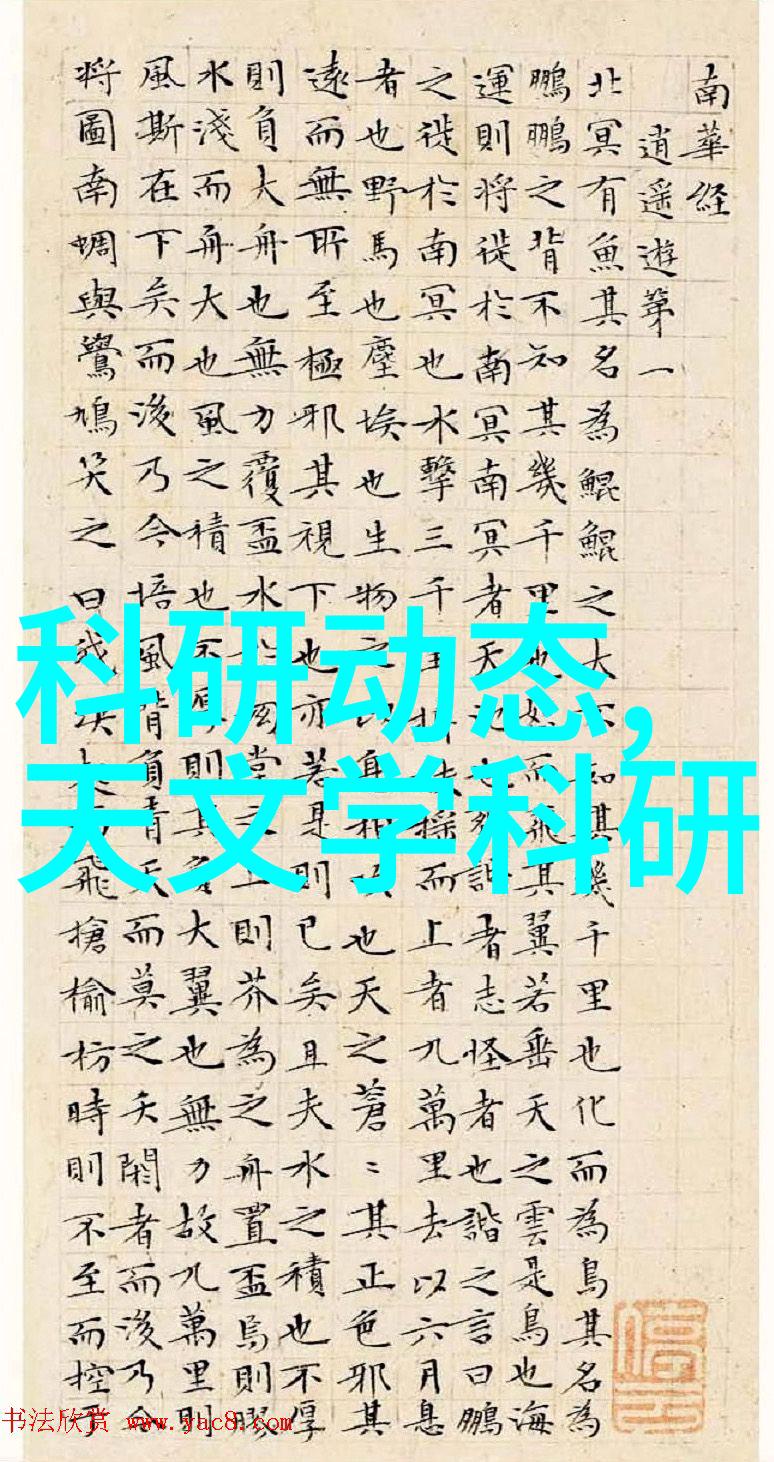 南華経
逍遥遊第一
北冥有魚其名為鯤鯤之大不知其幾千里也化而為鳥其名為
鵬鵬之背不知其幾千里也而飛其翼若垂天之雲是鳥也海
運則将徙於南冥南冥者天池也諧者志怪者也諧之言曰鵬
之徙於南冥也水擊三千里而上者九萬里去以六月息
者也野馬也塵埃也生物之以息相吹也天之蒼〻其正色邪其
遠而無所至極邪其視下也亦若是則已矣且夫水之積也不厚
則負大舟也無力覆盃水於堂之上則芥為之舟置盃焉則膠
水淺而舟大也風之積也不厚則其負大翼也無力故九萬里則
風斯在下矣而後乃今培風背負青天而莫之夭閼者而後乃今
将圖南蜩與鷽鳩笑之曰我飛搶榆枋時則不至而控於
科研动态,
天文学科研
书法欣赏 www.yac8.com